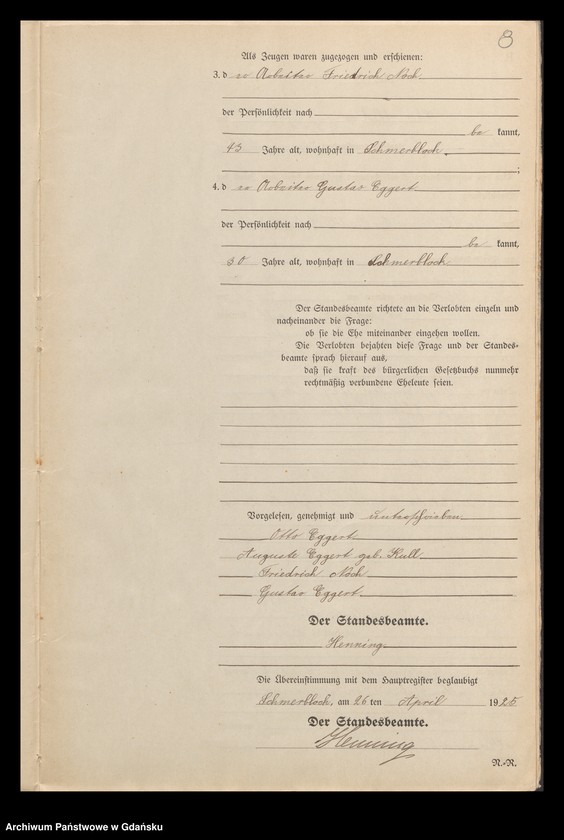 8
Als Zeugen waren zugezogen und erschienen:
3. der Arbeiter Friedrich Noch
der Persönlichkeit nach
be kannt,
43 Jahre alt, wohnhaft in Schmerblock
;
4. der Arbeiter Gustav Eggert
der Persönlichkeit nach
be kannt,
30 Jahre alt, wohnhaft in Schmerblock
Der Standesbeamte richtete an die Verlobten einzeln und
nacheinander die Frage:
ob sie die Ehe miteinander eingehen wollen.
Die Verlobten bejahten diese Frage und der Standes-
beamte sprach hierauf aus,
daß sie kraft des bürgerlichen Gesetzbuchs nunmehr
rechtmäßig verbundene Eheleute seien.
Vorgelesen, genehmigt und unterschrieben.
Otto Eggert
Auguste Eggert geb. Kull
Friedrich Noch
Gustav Eggert
Der Standesbeamte.
Henning
Die Übereinstimmung mit dem Hauptregister beglaubigt
Schmerblock, am 26 ten April 1925
Der Standesbeamte.
Henning
N.-R.
Archiwum Państwowe w Gdańsku